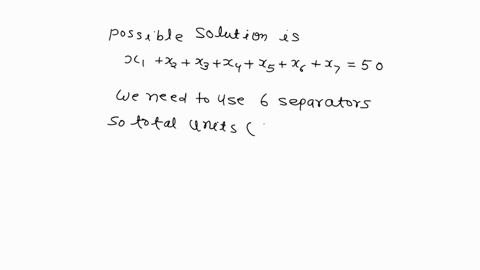 possible solution is
x₁ + x₂ + x₃ + x₄ + x₅ + x₆ + x₇ = 50
we need to use 6 separators
so total units (